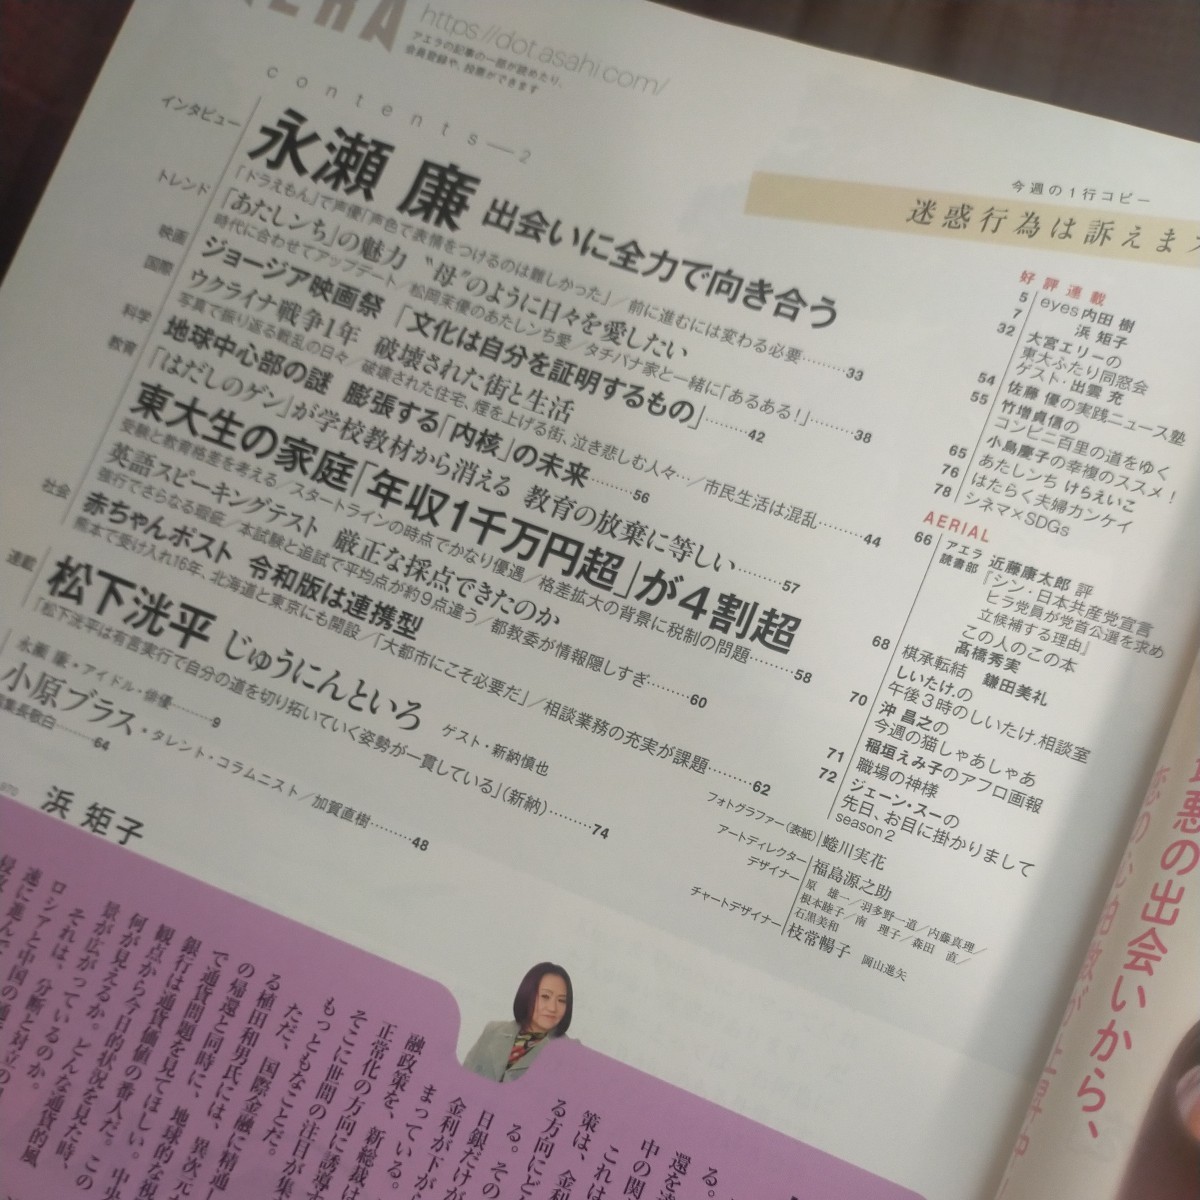 AERA
https://dot.asahi.com/
アエラの記事の一部が読めたり、
会員登録や、投票ができます
contents—2
インタビュー
永瀬 廉 出会いに全力で向き合う
「ドラえもん」で声優「声色で表情をつけるのは難しかった」／前に進むには変わる必要………33
トレンド
「あたしンち」の魅力 “母”のように日々を愛したい
時代に合わせてアップデート／松岡茉優のあたしンち愛／タチバナ家と一緒に「あるある！」………38
映画
ジョージア映画祭 「文化は自分を証明するもの」………42
国際
ウクライナ戦争1年 破壊された街と生活
写真で振り返る戦乱の日々／破壊された住宅、煙を上げる街、泣き悲しむ人々…／市民生活は混乱………44
科学
地球中心部の謎 膨張する「内核」の未来………56
教育
「はだしのゲン」が学校教材から消える 教育の放棄に等しい………57
東大生の家庭「年収1千万円超」が4割超
受験と教育格差を考える／スタートラインの時点でかなり優遇／格差拡大の背景に税制の問題………58
英語スピーキングテスト 厳正な採点できたのか
強行でさらなる瑕疵／本試験と追試で平均点が約9点違う／都教委が情報隠しすぎ………60
社会
赤ちゃんポスト 令和版は連携型
熊本で受け入れ16年、北海道と東京にも開設／「大都市にこそ必要だ」／相談業務の充実が課題………62
連載
松下洸平 じゅうにんといろ ゲスト・新納慎也
「松下洸平は有言実行で自分の道を切り拓いていく姿勢が一貫している」（新納）………74
永瀬 廉・アイドル・俳優………9
小原ブラス・タレント・コラムニスト／加賀直樹………48
編集長敬白………64
今週の1行コピー
迷惑行為は訴えま
好評連載
5 eyes 内田 樹
7 浜 矩子
32 大宮エリーの
東大ふたり同窓会
ゲスト・出雲 充
54 佐藤 優の実践ニュース塾
55 竹増貞信の
コンビニ百里の道をゆく
65 小島慶子の幸複のススメ！
76 あたしンち けらえいこ
78 はたらく夫婦カンケイ
シネマ×SDGs
AERIAL
66 アエラ読書部 近藤康太郎 評
『シン・日本共産党宣言
ヒラ党員が党首公選を求め
立候補する理由』
この人のこの本
髙橋秀実
68 棋承転結 鎌田美礼
しいたけ.の
午後3時のしいたけ.相談室
70 沖 昌之の
今週の猫しゃあしゃあ
71 稲垣えみ子のアフロ画報
職場の神様
72 ジェーン・スーの
先日、お目に掛かりまして
season2
フォトグラファー（表紙） 蜷川実花
アートディレクター 福島源之助
デザイナー 原 雄一／羽多野一道／内藤真理／
根本睦子／南 理子／森田 直／
石黒美和
チャートデザイナー 枝常暢子 岡山進矢
浜 矩子
る。
還を
中の関
これは
策は、金利
る方向にど
る。その
日銀だけが
金利が下がら
まっている。
融政策を、新総裁は
正常化の方向に誘導す
そこに世間の注目が集
もっともなことだ。
ただ、国際金融に精通し
る植田和男氏には、異次元か
の帰還と同時に、地球的な視
で通貨問題を見てほしい。中央
銀行は通貨価値の番人だ。この
観点から今日的状況を見た時、
何が見えるか。どんな通貨的風
景が広がっているのか。
それは、分断と対立の
ロシアと中国の通
速に進んで
悪の出会いから、